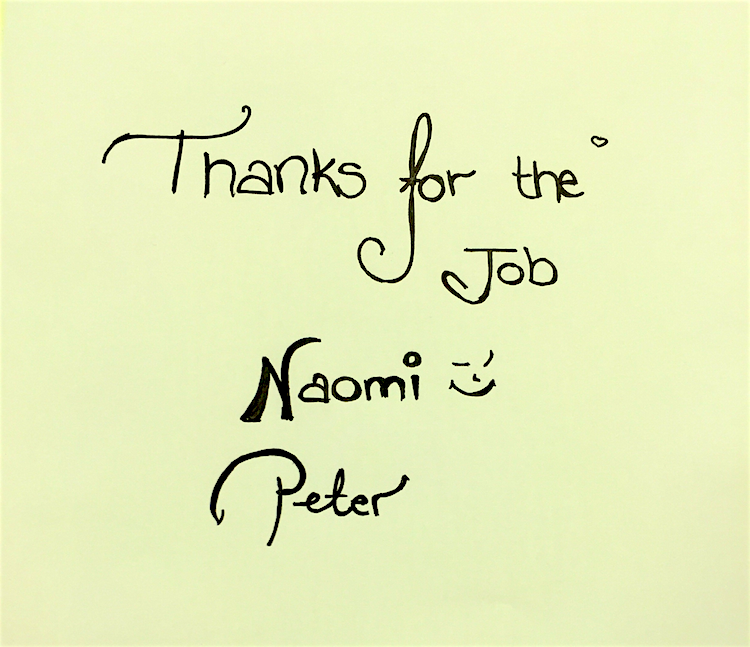 Thanks for the
Job
Naomi
Peter